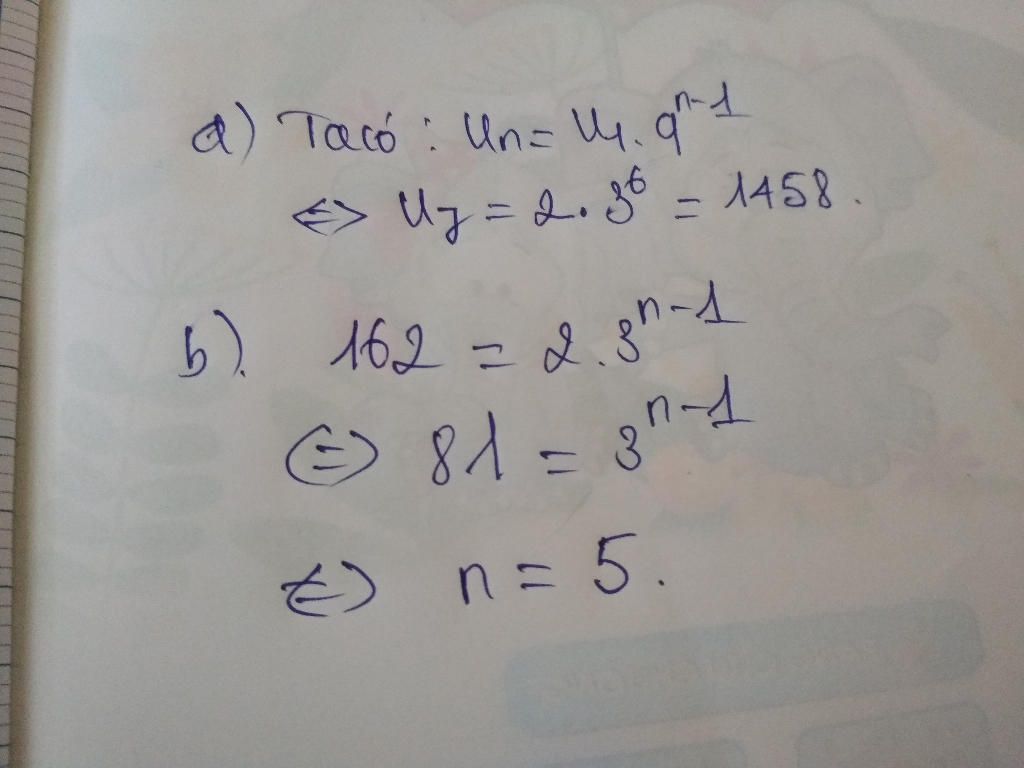 a) Ta có : Un = U1. q^{n-1}
<=> U7 = 2 . 3^6 = 1458.
b). 162 = 2. 3^{n-1}
<=> 81 = 3^{n-1}
<=> n = 5.